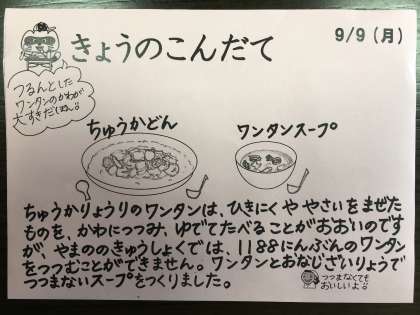 きょうのこんだて
9/9(月)
つるんとした
ワンタンのかわが
大すきだぽん♪
ちゅうかどん
ワンタンスープ
ちゅうかりょうりのワンタンは、ひきにくややさいをまぜた
ものを、かわにつつみ、ゆでてたべることがおおいのです
が、やまののきゅうしょくでは、1188にんぶんのワンタン
をつつむことができません。ワンタンとおなじざいりょうで
つつまないスープをつくりました。
つつまなくても
おいしいよ♪